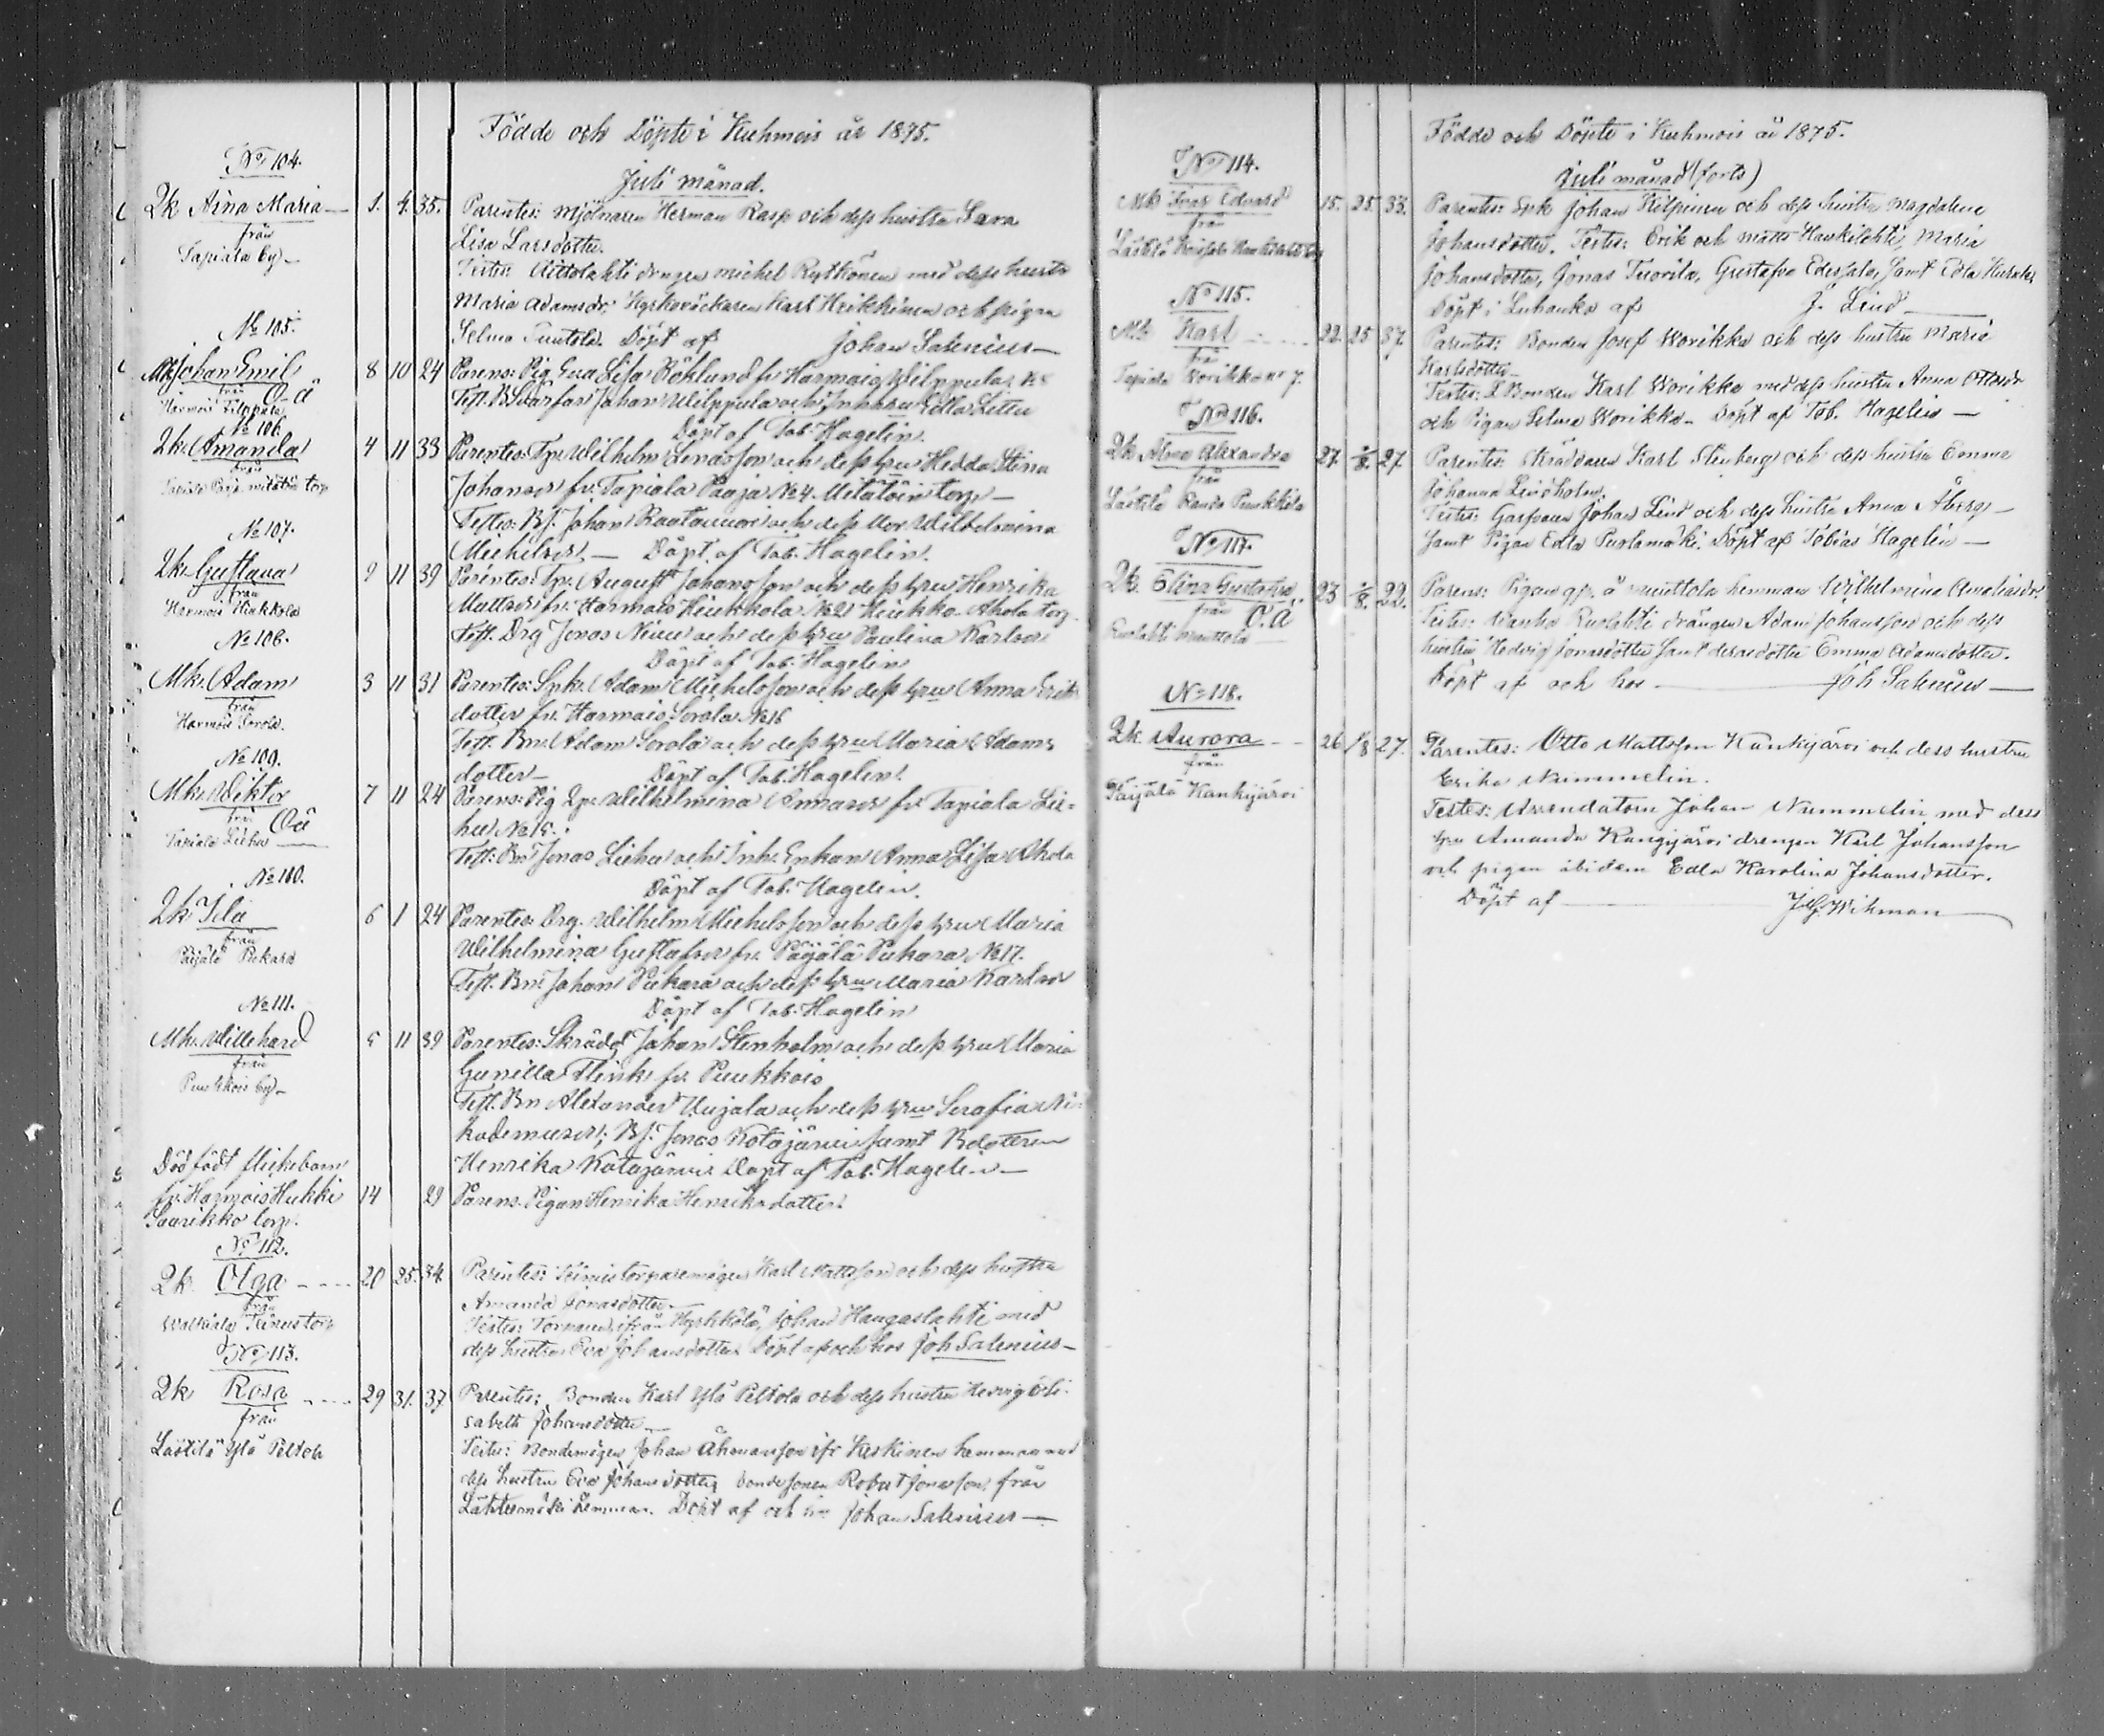 Födde och Döpte i Kuhmois år 1875.
Juli månad.
No 104.
Qk Aina Maria — 1. 4. 35.
från
Tapiala by —
Parentes: Mjölnaren Herman Rasp och dess hustru Sara
Lisa Larsdotter.
Testes: drängen Michel Rytkönen med dess hustru
Maria Adamsdr; Kyrkoväckaren Karl Heikkinen och pigan
Selma Tuntela. Döpt af Johan Salenius —
No 105.
Mk Johan Emil 8 10 24
från O-ä
Harmois Vilppula
Parens: Pig. Eva Lisa Röklund fr. Harmois Wilppula No 8
Test. Johan Wilppula och Edla
Döpt af Tob. Hagelin.
No 106.
Qk. Amanda 4 11 33
från
torp
Parentes: Tp. Wilhelm Jonasson och dess hru Hedda Stina
Johansdr fr. Tapiala Paaja No 4. torp —
Testes: Bs. Johan Rautavuori och dess Mor Wilhelmina
Michelsdr. — Döpt af Tob. Hagelin.
No 107.
Qk. Gustava 9 11 39
från
Harmois Hiukkola
Parentes: Tp. August Johansson och dess hru Henrika
Mattsdr fr. Harmois Hiukkola No 21 Ahola torp
Test. Drg Jonas Niemi och dess hru Paulina Karlsdr
Döpt af Tob. Hagelin
No 108.
Mk. Adam 3 11 31
från
Harmois Sorola.
Parentes: Spk. Adam Michelsson och dess hru Anna Eriks
dotter fr. Harmois Sorola No 16
Test. Bn. Adam Sorola och dess hru Maria Adams
dotter — Döpt af Tob. Hagelin.
No 109.
Mk. Viktor 7 11 24
från Oä
Tapiala Lieha —
Parens: Pig. Wilhelmina Annasdr fr. Tapiala Lie-
hu No 15.
Test: Bn Jonas Liehu och Inh. Enkan Anna Lisa Ahola
Döpt af Tob. Hagelin.
No 110.
Qk Ida 6 1 24
från
Päijälä Pukara
Parentes: Drg. Wilhelm Michelsson och dess hru Maria
Wilhelmina Gustafsdr fr. Päijälä Pukara No 17.
Test. Bn. Johan Pukara och dess hru Maria Karlsdr
Döpt af Tob. Hagelin
No 111.
Mk. Willehard 5 11 39
från
Puukkois by —
Parentes: Skrädd. Johan Stenholm och dess hru Maria
Gunilla Flink fr. Puukkois
Test. Bn Alexander Uujala och dess hru Serafia Ni-
kodemusdr; Bs. Jonas Kotajärvi samt Bdotteren
Henrika Kotajärvi. Döpt af Tob. Hagelin —
Död född flickebarn
fr. Harmois Hukki 14 29
Saarikko torp.
Parens. Pigan Henrika Henriksdotter.
No 112.
Qk. Olga 20 25. 34.
från
torp
Parentes: Karl Mattsson och dess hustru
Amanda Jonasdotter —
Testes: ifrån Johan Hangaslahti med
dess hustru Eva Johansdotter. Döpt af och hos Joh Salenius —
No 113.
Qk Rosa 29 31. 37
från
Lästilä Ylä Peltola
Parentes: Bonden Karl Ylä Peltola och dess hustru Hedvig Eli-
sabeth Johansdotter —
Testes: Bondemågen Johan ifr Keskinen hemman med
dess hustru Eva Johansdotter, bondesonen Robert Jonasson från
hemman. Döpt af och hos Johan Salenius —
Födde och Döpte i Kuhmois år 1875.
Juli månad (forts)
No 114.
Mk Ivar Edvard 15. 25. 33.
från
Parentes: Spk Johan Kilpinen och dess hustru Magdalena
Johansdotter. Testes: Erik och Matts Haukilahti, Maria
Johansdotter, Jonas Tuorila, Gustafva samt Edla
Döpt i Luhanka af J. Lind —
No 115.
Mk Karl 22. 25 37.
från
Tapiala Worikka No 7.
Parentes: Bonden Josef Worikka och dess hustru Maria
Karlsdotter —
Testes: Bonden Karl Worikka med dess hustru Anna Ottosdr
och Pigan Selma Worikka — Döpt af Tob. Hagelin —
No 116.
Qk Alma Alexandra 27. 27.
från
Lästilä Punkkila
Parentes: Skräddaren Karl Stenberg och dess hustru Emma
Johanna Lindholm.
Testes: Garfvaren Johan Lind och dess hustru Anna Åberg —
samt Pigan Edla Purtamäki. Döpt af Tobias Hagelin —
No 117.
Qk. Elina Gustafva 23 1/8. 22.
från O.ä
Ruolahti Muttola
Parens: Pigan på Muttola hemman Wilhelmina
Testes: Ruolahti drängen Adam Johansson och dess
hustru Hedvig Jonasdotter samt deras dotter Emma Adamsdotter.
Döpt af och hos — Joh Salenius —
No 118.
Qk. Aurora 26 1/8 27.
från
Päijälä Kankijärvi
Parentes: Otto Mattsson Kankijärvi och dess hustru
Erika Nummelin.
Testes: Arrendatorn Johan Nummelin med dess
hru Amanda Kangijärvi drengen Karl Johansson
och pigan ibidem Edla Karolina Johansdotter.
Döpt af — J.G. Wikman